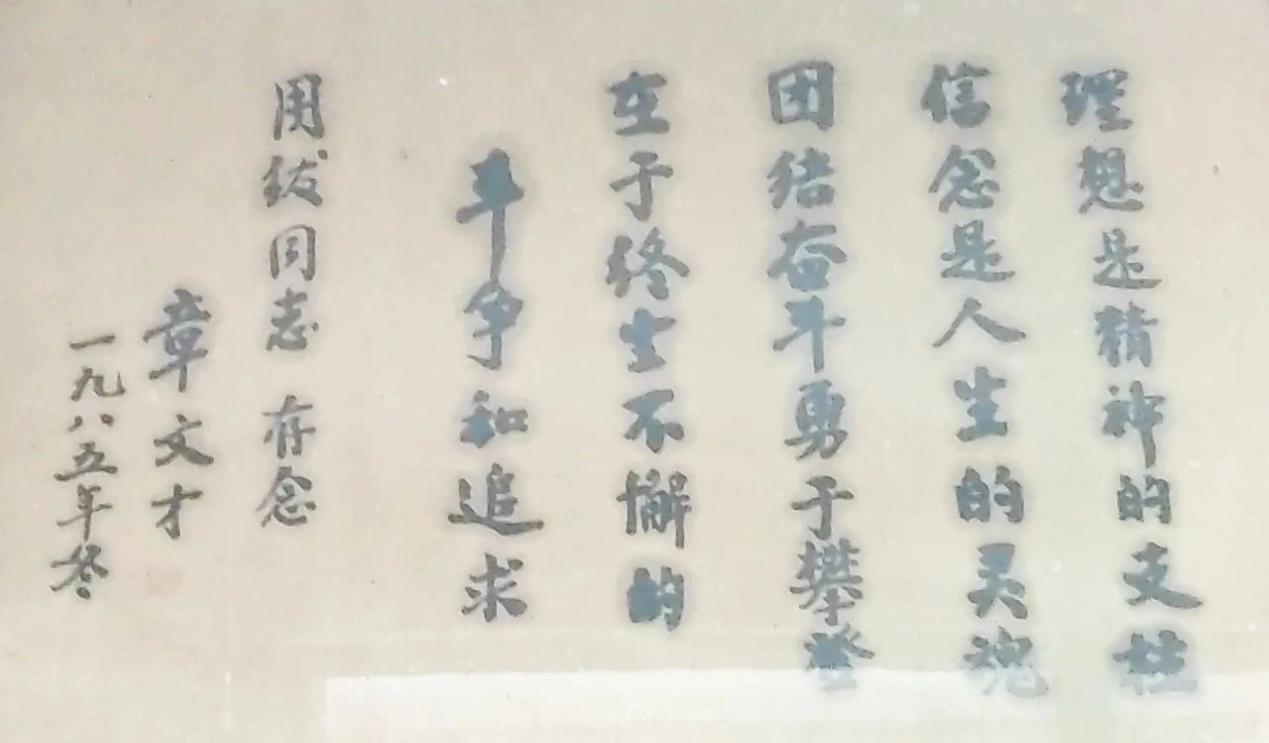 理想是精神的支柱
信念是人生的灵魂
团结奋斗勇于攀登
在于终生不懈的
斗争和追求
用钹同志 存念
章文才
一九八五年冬